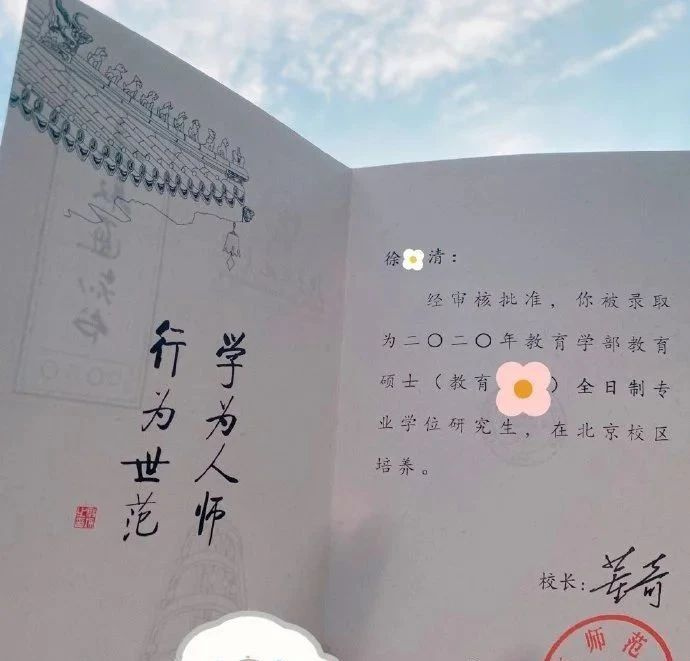 学为人师
行为世范
徐 清：
经审核批准，你被录取
为二〇二〇年教育学部教育
硕士（教育 ）全日制专
业学位研究生，在北京校区
培养。
校长：董奇
师范